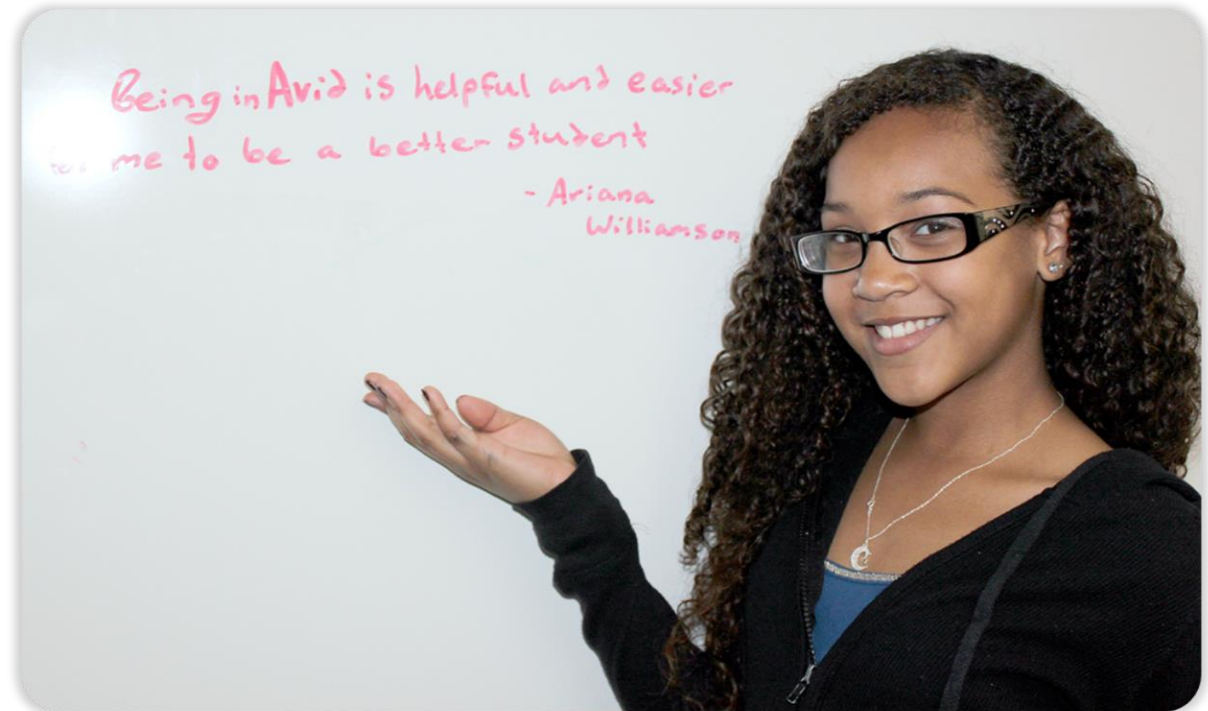 Being in Avid is helpful and easier
for me to be a better student
- Ariana
Williamson